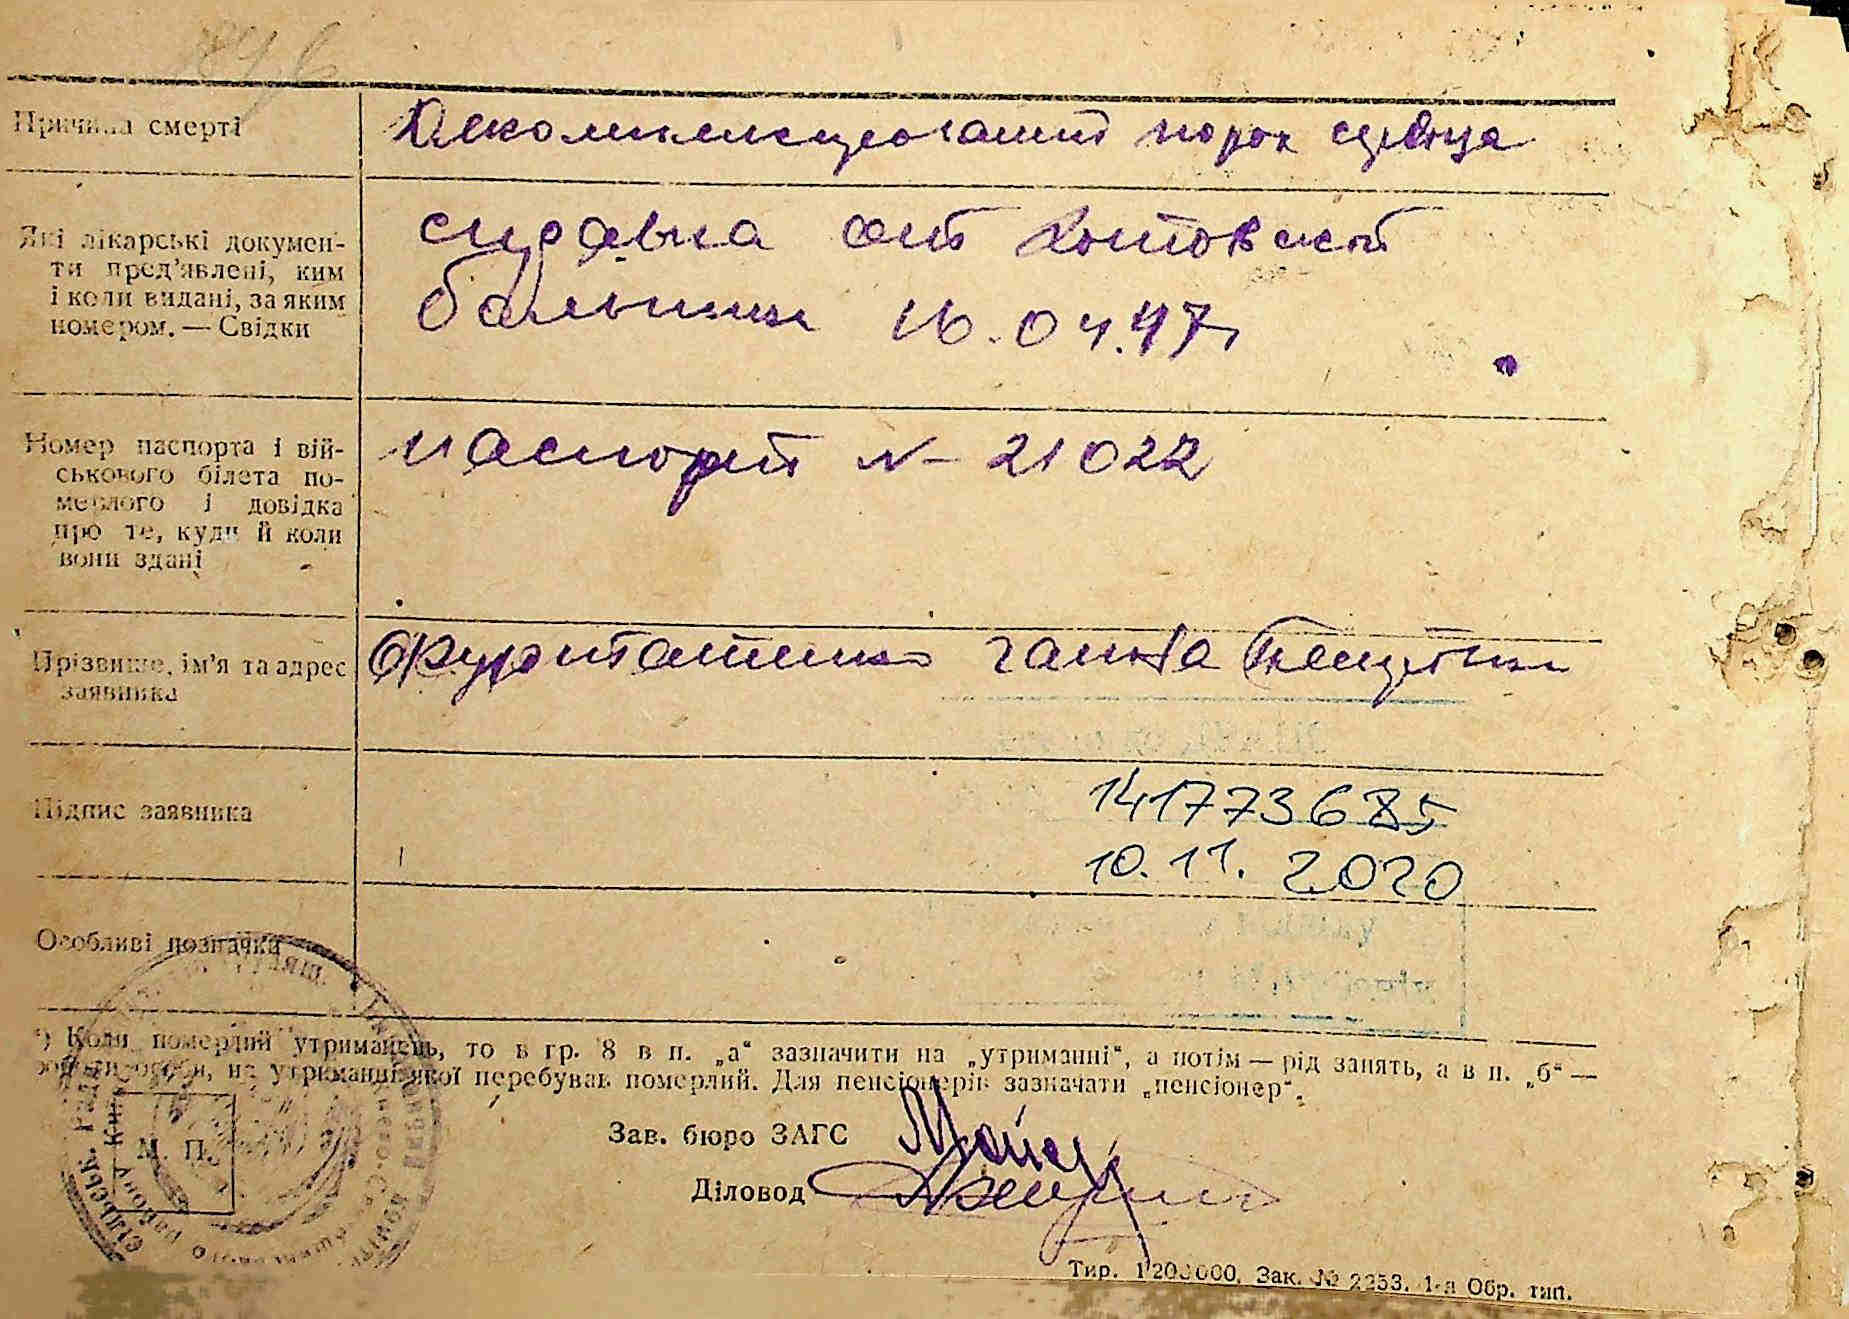 Причина смерті
Декомпенсированный порок сердца
Які лікарські докумен-
ти пред'явлені, ким
і коли видані, за яким
номером. — Свідки
справка от Котовской
больницы 16.04.47г
Номер паспорта і вій-
ськового білета по-
мерлого і довідка
про те, куди й коли
вони здані
паспорт № 21022
Прізвище, ім'я та адрес
заявника
Ганна
Підпис заявника
141773685
10.11.2020
Особливі позначки
*) Коли померлий утриманець, то в гр. 8 в п. „а“ зазначити на „утриманні“, а потім — рід занять, а в п. „б“ —
особи, на утриманні якої перебував померлий. Для пенсіонерів зазначати „пенсіонер“.
М. П.
Зав. бюро ЗАГС
Діловод
Тир. 1200000. Зак. № 2253. 1-а Обр. тип.